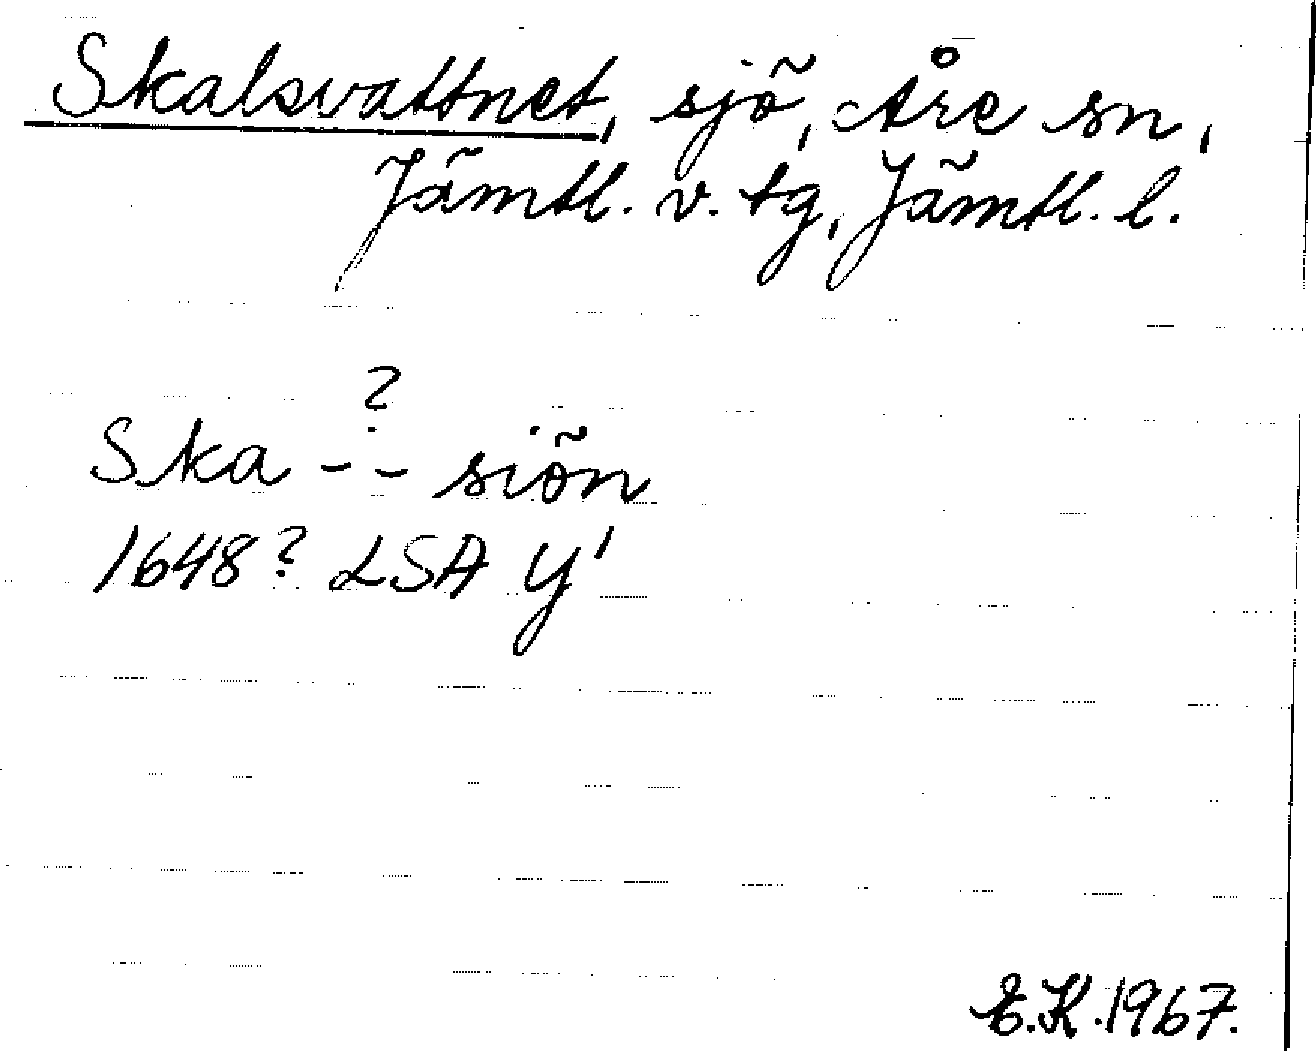 Skalsvattnet, sjö, Åre sn,
Jämtl. v. tg, Jämtl. l.
?
Ska - - siön
1648? LSA Y'
E.K. 1967.